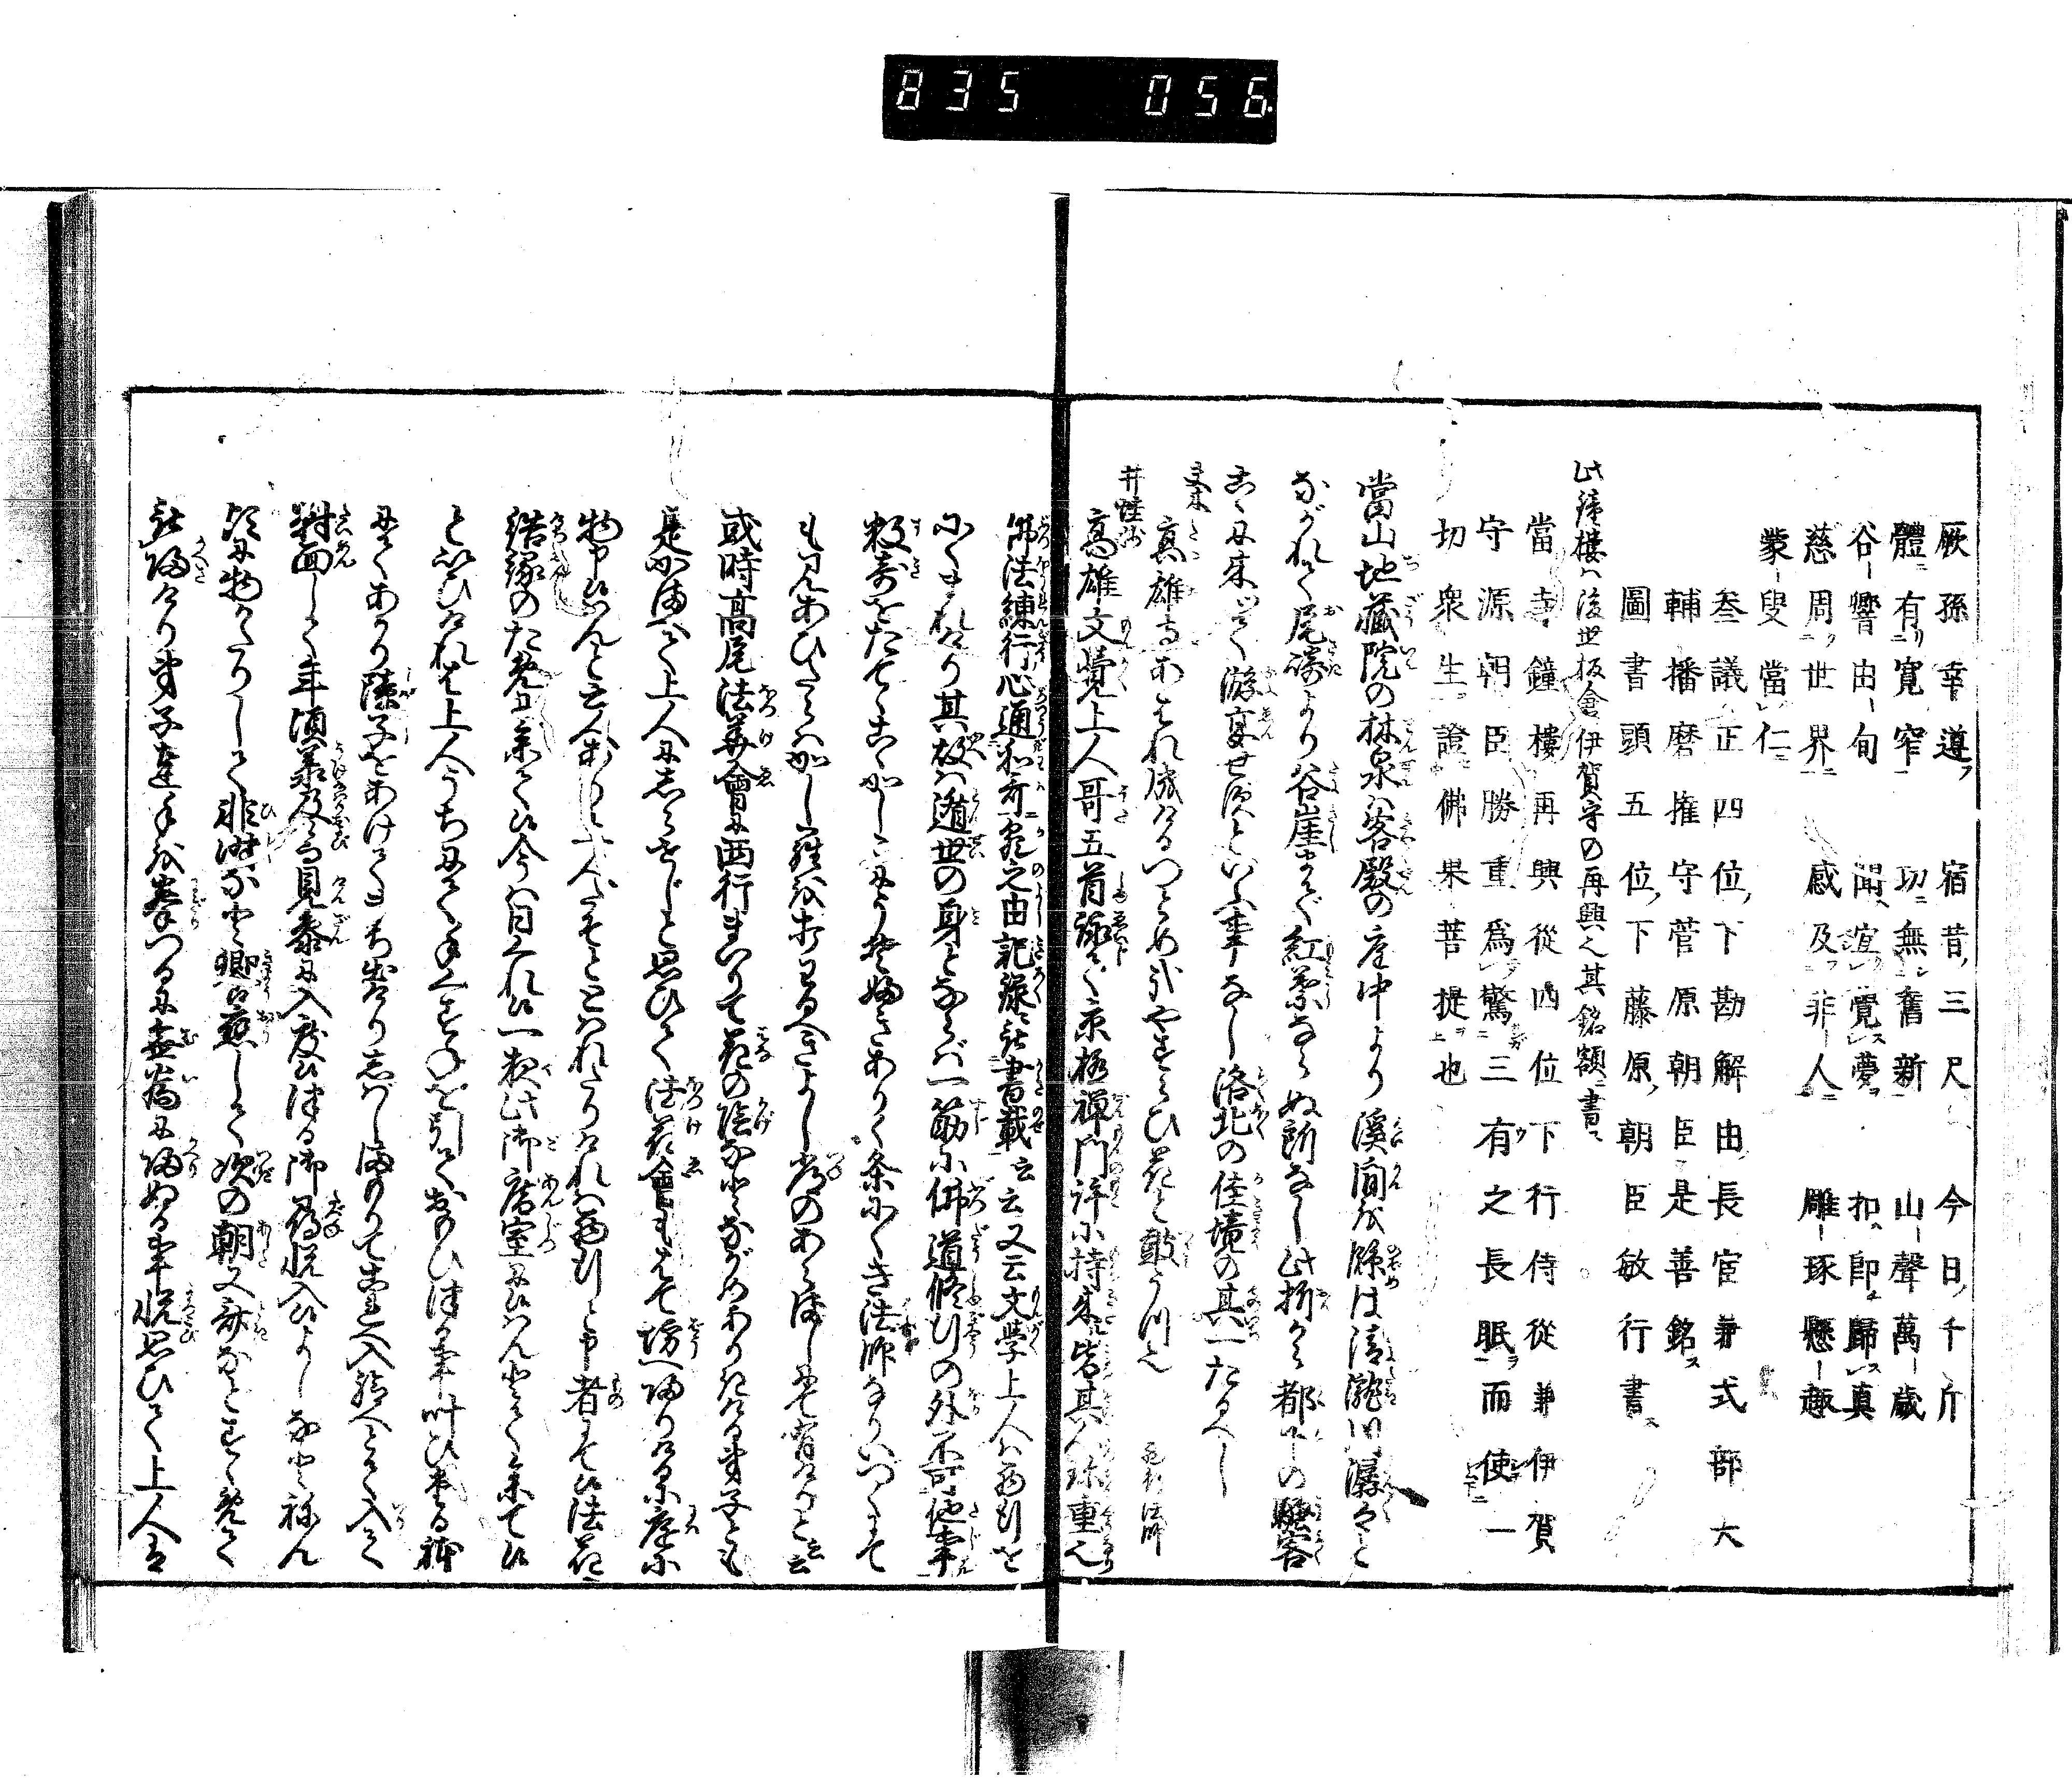 835 056
厥孫幸遵 宿昔三尺 今日千斤
體有寬窄 功無舊新 山聲萬歲
谷響由旬 聞諠覺夢 扣即歸真
慈周世界 感及非人 雕琢懸趣
蒙叟當仁
叅議正四位下勘解由長官兼式部大
輔播磨権守菅原朝臣是善銘
圖書頭五位下藤原朝臣敏行書
此鐘樓ハ後世板倉伊賀守の再興也其銘額ニ書ス
當寺鐘樓再興從四位下行侍從兼伊賀
守源朝臣勝重為驚三有之長眠而使一
切衆生證佛果菩提也
當山地藏院の林泉ハ客殿の庭中より溪間を臨は清瀧川潺々と
ながれて尾崎より谷崖まで紅葉ならぬ所なし此折から都下の騒客
こゝに来つて遊宴せずといふ事なし洛北の佳境の其一たるべし
高雄寺あはれ成けるつとめ哉やすらひ花と鼓うつ也
高雄文覺上人哥五首詠て京極禪門許に持来皆其人珎重也
佛法練行心通和哥冤之由記録ニ被書載云云又云文學上人ハ西行を
にくまれけり其故ハ遁世の身とならバ一筋に佛道修行の外不可他事
数寄をたてゝこゝかしこにうそぶきありく条にくき法師なりいづくにて
も見あひたらバかしらを打わるべきよし常のあらましにて有けりと云云
或時高尾法華會に西行まいりて花の陰などながめありきける弟子とも
是かまへて上人にしらせじと思ひて法花會もはてゝ坊へ帰りけるに庭に
物申候ハんと云人あり上人たそととハれたりけれハ西行と申者にて候法花
結縁のために来て候今ハ日くれ候一夜此御庵室に候ハんとて来て候
といひけれハ上人うちにて手ぐすねを引て思ひつる事叶ひたる体
にてあかり障子をあけてまち出けりしばしまもりてこれへ入給へとて入て
對面して年頃承及候て見參に入度候つる御尋悦入候よしなどねん
頃に物がたりして非時など饗應して次の朝又斎などすゝめて
被帰けり弟子達手を拳つるに無為に帰ぬる事悦思ひて上人ハ